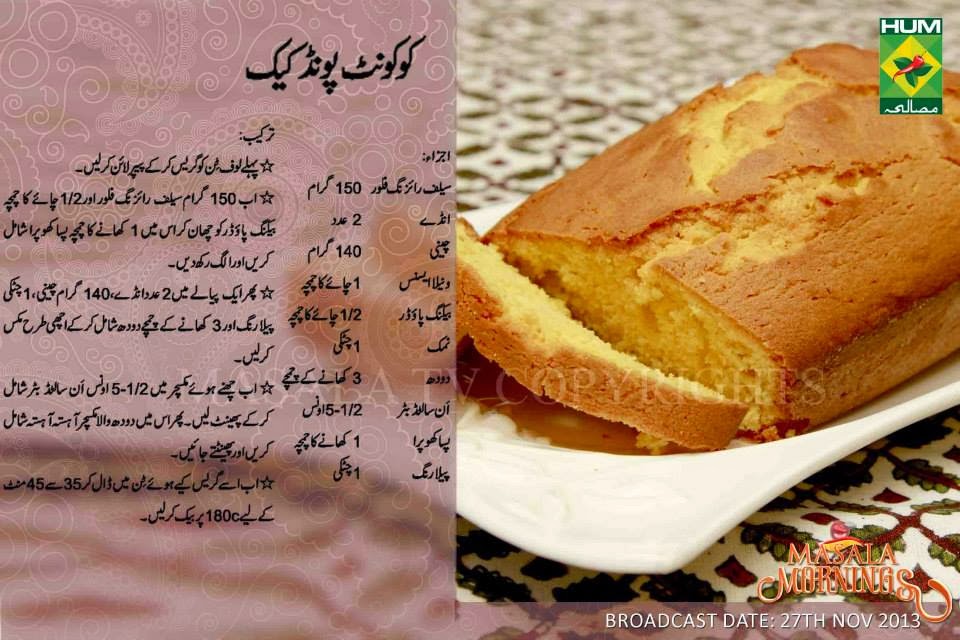 کوکونٹ پونڈ کیک
اجزاء:
سیلف رائزنگ فلور 150 گرام
انڈے 2 عدد
چینی 140 گرام
ونیلا ایسنس 1 چائے کا چمچہ
بیکنگ پاؤڈر 1/2 چائے کا چمچہ
نمک 1 چٹکی
دودھ 3 کھانے کے چمچے
اَن سالٹڈ بٹر 5-1/2 اونس
پسا کھوپرا 1 کھانے کا چمچہ
پیلا رنگ 1 چٹکی
ترکیب:
☆ پہلے لوف ٹِن کو گریس کر کے پیپر لائن کرلیں۔
☆ اب 150 گرام سیلف رائزنگ فلور اور 1/2 چائے کا چمچہ
بیکنگ پاؤڈر کو چھان کر اس میں 1 کھانے کا چمچہ پسا کھوپرا شامل
کریں اور الگ رکھ دیں۔
☆ پھر ایک پیالے میں 2 عدد انڈے، 140 گرام چینی، 1 چٹکی
پیلا رنگ اور 3 کھانے کے چمچے دودھ شامل کر کے اچھی طرح مکس
کرلیں۔
☆ اب چھنے ہوئے مکسچر میں 5-1/2 اونس اَن سالٹڈ بٹر شامل
کر کے پھینٹ لیں۔ پھر اس میں دودھ والا مکسچر آہستہ آہستہ شامل
کریں اور پھینٹتے جائیں۔
☆ اب اسے گریس کیے ہوئے ٹِن میں ڈال کر 35 سے 45 منٹ
کے لیے 180c پر بیک کرلیں۔
HUM
مصالحہ
MASALA TV COPYRIGHTS
MASALA
MORNINGS
BROADCAST DATE: 27TH NOV 2013